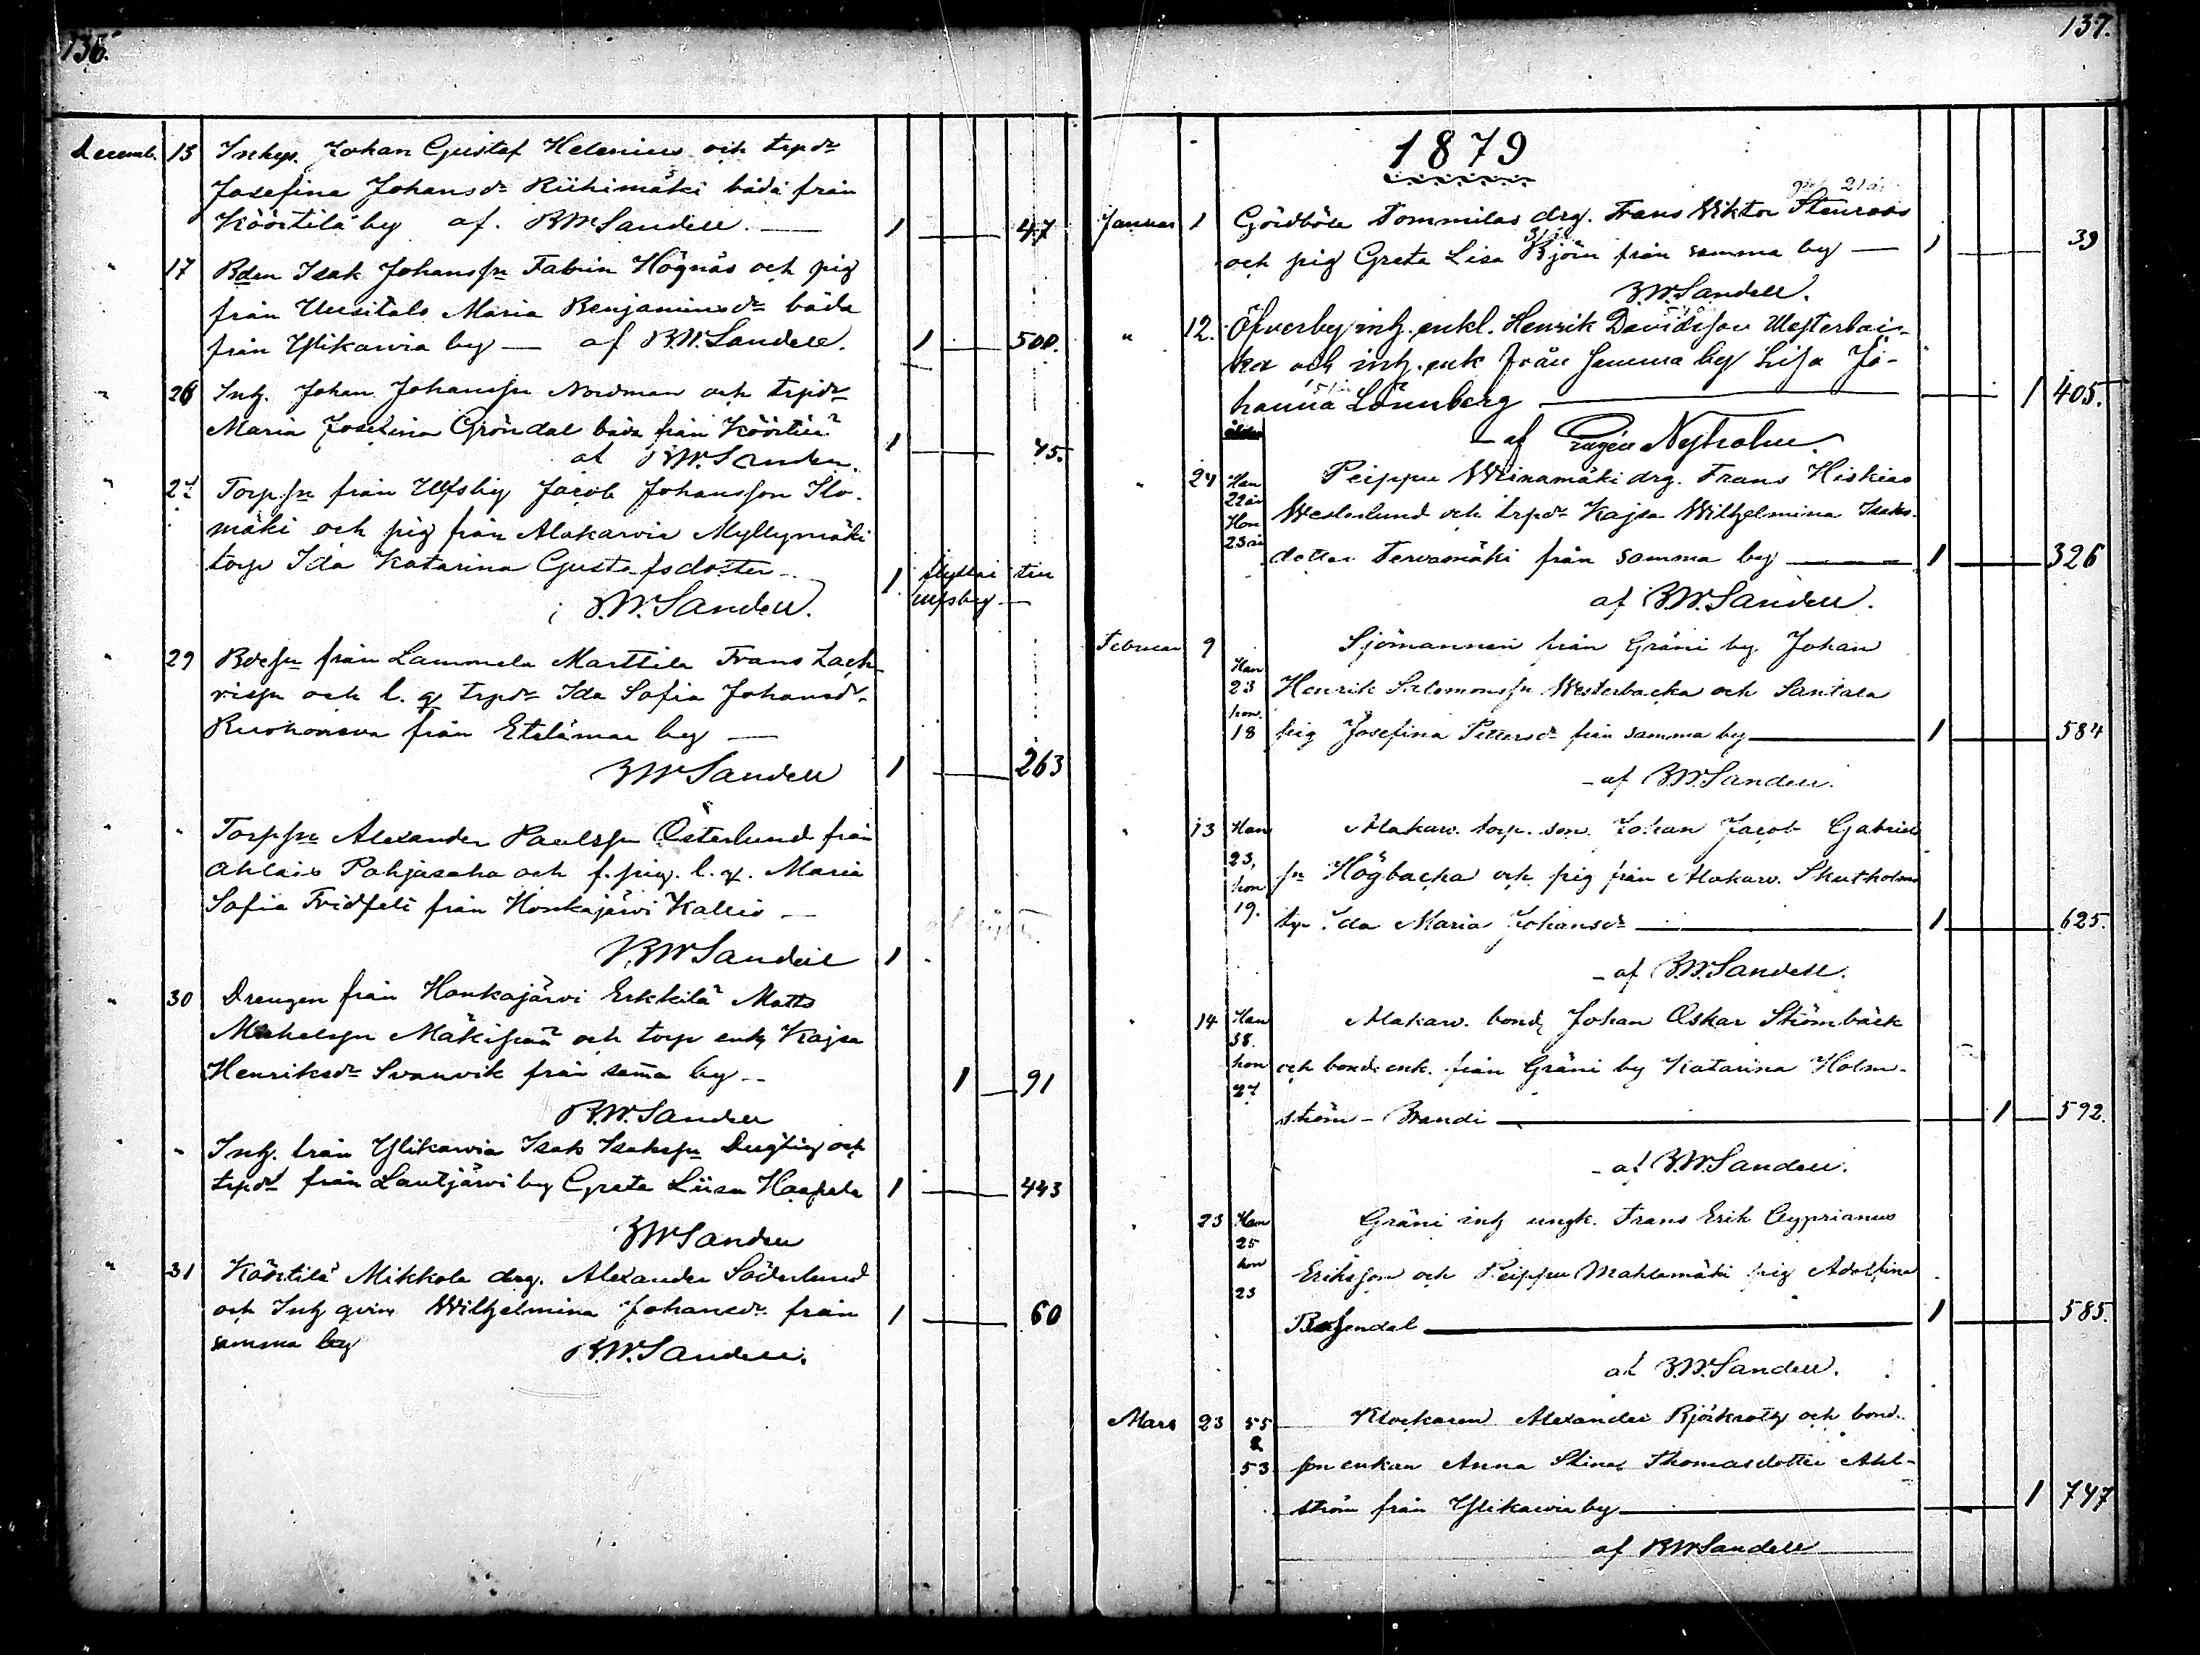 136.
Decemb. 15 Inhys. Johan Gustaf Helenius och trpdr
Josefina Johansdr Riihimäki båda från
Köörtilä by af. B.W. Sandell. — 1 47
" 17 Bden Isak Johanssn Fabrin Högnäs och pig
från Uusitalo Maria Benjaminsdr båda
från Ylikarvia by — af B.W. Sandell. 1 500.
" 26 Inh. Johan Johanssn Nordman och trpdr
Maria Josefina Gröndal båda från Köörtilä
af B.W. Sandell. 1 45.
" 27 Torp.sn från Ulfsby Jacob Johansson Ilo-
mäki och pig från Alakarvia Myllymäki
torp Ida Katarina Gustafsdotter — 1 flyttai till
B.W. Sandell. Ulfsby —
" 29 Bdesn från Lammela Marttila Frans Zach-
rissn och l. q trpdr Ida Sofia Johansdr
Ruohoneva från Etelämaa by —
B W Sandell 1 263
" " Torpsn Alexander Paulssn Österlund från
Ahlais Pohjasaha och f. pig. l. q. Maria
Sofia Fridfelt från Honkajärvi Kallio —
B W Sandell 1
" 30 Drengen från Honkajärvi Erkkilä Matts
Michelssn Mäkipää och torp enk Kajsa
Henriksdr Svanvik från sama by — 1 91
B.W. Sandell
" Inh. från Ylikarvia Isak Isakssn Dugtig och
trpdr från Lautjärvi by Greta Liisa Haapala 1 443
B W Sandell
" 31 Köörtilä Mikkola drg. Alexander Söderlund
och Inh qvin Wilhelmina Johansdr från 1 60
samma by B.W. Sandell.
137.
1879
21 år
Januar 1 Gördböle Tommilas drg. Frans Wiktor Stenroos
31 år
och pig Greta Lisa Björn från samma by — 1 39
B.W. Sandell.
" 12. Öfverby inh. enkl. Henrik Davidsson Westerbac-
ka och inh. enk från samma by Lisa Jo-
hanna Lönnberg — 1 405.
ålder
— af Eugen Nyholm.
" 24 Han Peippu Wiinamäki drg. Frans Hiskias
22 år
Hon Westerlund och trpdr Kajsa Wilhelmina Isaks-
23 år
dotter Tervamäki från samma by — 1 326
af B.W. Sandell.
Februar 9 Sjömannen från Gräni by Johan
Han
23 Henrik Salomonssn Westerbacka och Santala
hon.
18 pig Josefina Pettersdr från samma by — 1 584
— af B.W. Sandell.
" 13 Han Alakarv. torp. son. Johan Jacob Gabriels
23,
hon sn Högbacka och pig från Alakarv. Skutholm
19. trp. Ida Maria Johansdr — 1 625.
— af B.W. Sandell.
" 14 Han Alakarv. bond. Johan Oskar Strömbäck
38.
hon och bond. enk. från Gräni by Katarina Holm-
27
ström - Brandi — 1 592.
— af B.W. Sandell.
" 23 Han Gräni inh ungk. Frans Erik Cyprianus
25
hon Eriksson och Peippu Mahlamäki pig Adolfina
23
Rosendal — 1 585.
af B.W. Sandell.
Mars 23 55 Klockaren Alexander Björkroth och bond.
&
53 son enkan Anna Stina Thomasdotter Ahl-
ström från Ylikarvia by — 1 747
af B W Sandell